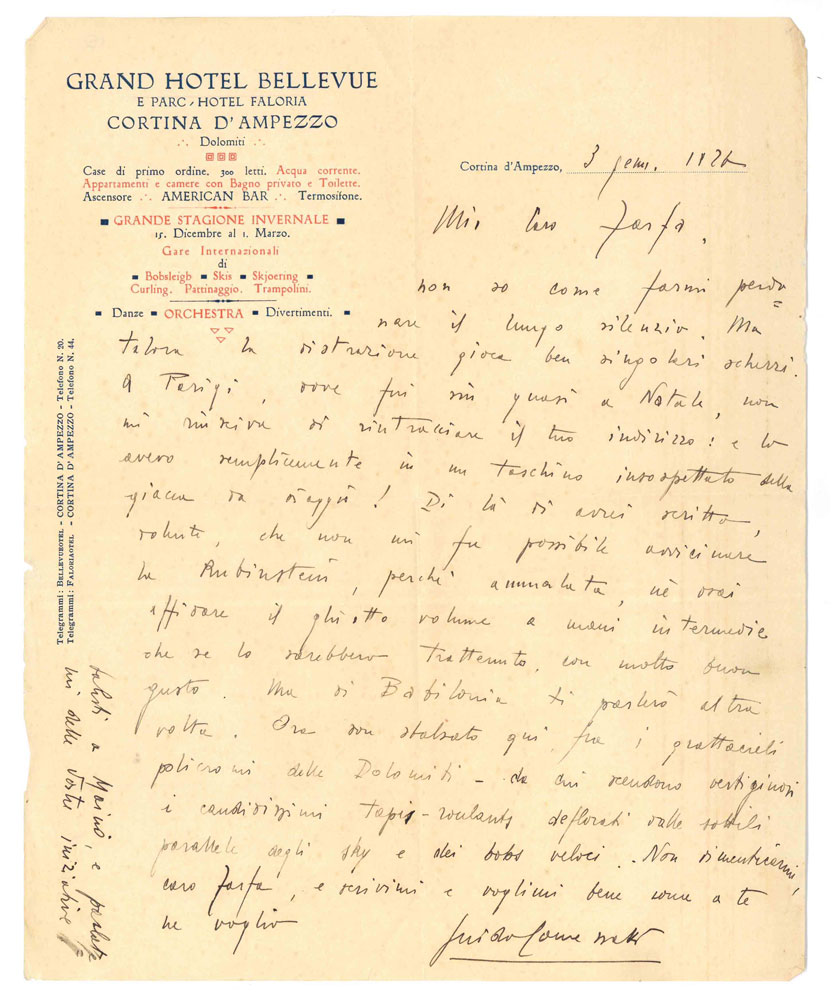 GRAND HOTEL BELLEVUE
E PARC-HOTEL FALORIA
CORTINA D'AMPEZZO
Dolomiti
Case di primo ordine, 300 letti. Acqua corrente.
Appartamenti e camere con Bagno privato e Toilette.
Ascensore ∴ AMERICAN BAR ∴ Termosifone.
GRANDE STAGIONE INVERNALE
15. Dicembre al 1. Marzo.
Gare Internazionali
di
Bobsleigh ▪ Skis ▪ Skjoering
Curling. Pattinaggio. Trampolini.
Danze ▪ ORCHESTRA ▪ Divertimenti.
Telegrammi: BELLEVUEOTEL - CORTINA D'AMPEZZO - Telefono N. 20.
Telegrammi: FALORIAOTEL - CORTINA D'AMPEZZO - Telefono N. 44.
Cortina d'Ampezzo, 3 genn. 1926
Mio caro Farfa,
non so come farmi perdo=
nare il lungo silenzio. Ma
talora la distrazione gioca ben singolari scherzi.
A Parigi, dove fui sin quasi a Natale, non
mi riusciva di rintracciare il tuo indirizzo: e lo
avevo semplicemente in un taschino insospettato della
giacca da viaggio! Di là ti avrei scritto,
che non mi fu possibile avvicinare
la Rubinstein, perché ammalata, né osai
affidare il ghiotto volume a mani intermedie
che se lo sarebbero trattenuto, con molto buon
gusto. Ma di Babilonia ti parlerò altra
volta. Ora son sbalzato qui, fra i grattacieli
policromi delle Dolomiti - da cui scendono vertiginosi
i candidissimi tapis-roulants deflorati dalle sottili
parallele degli sky e dei bobs veloci. Non dimenticarmi,
caro Farfa, e scrivimi e voglimi bene come a te
ne voglio
saluti a Maino, e parlate
mi delle Vostre iniziative